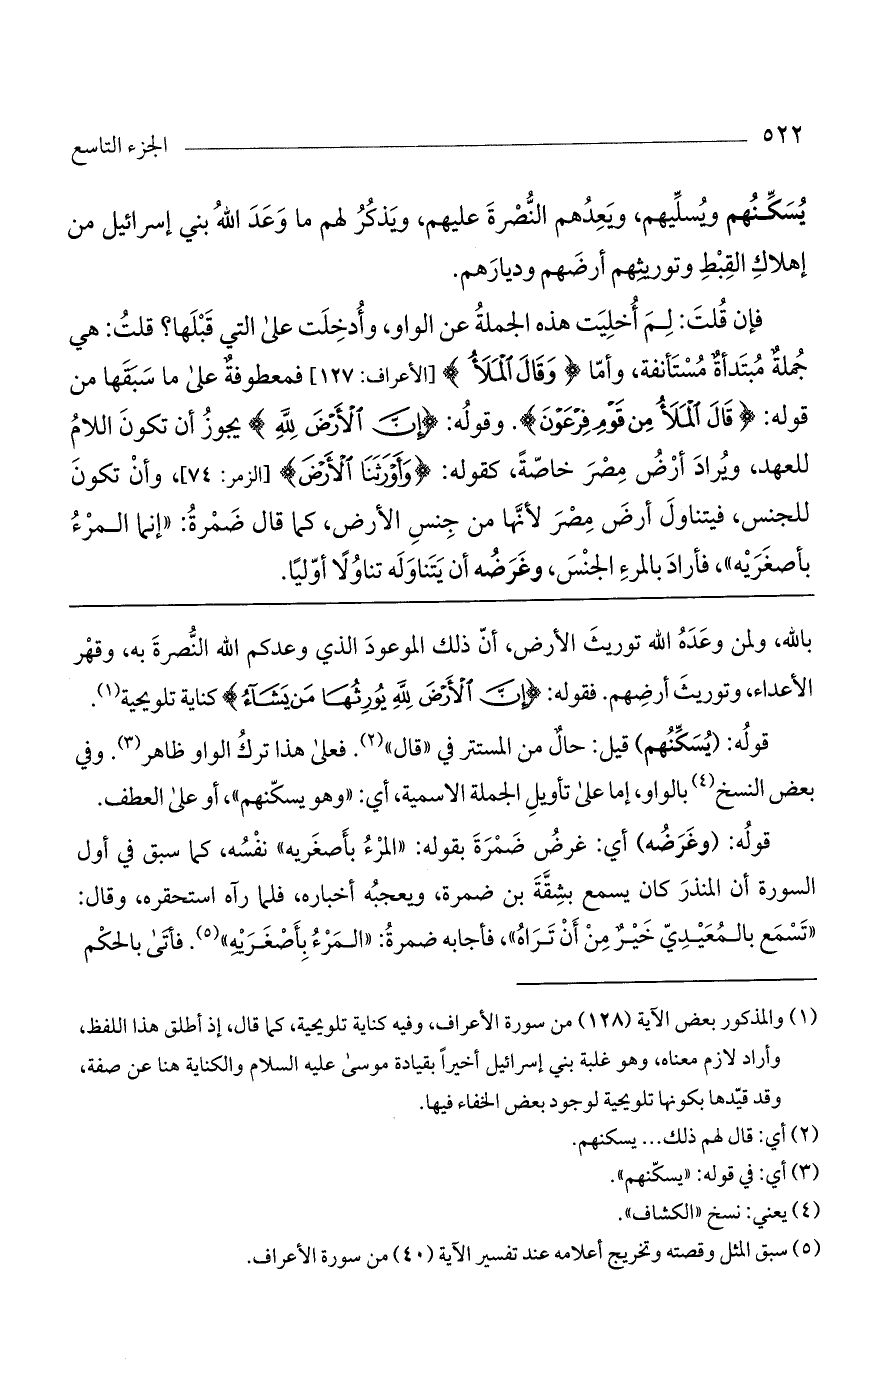 ٥٢٢ الجزء التاسع
يُسَكِّنُهم ويُسلِّيهم، ويَعِدُهم النُّصْرةَ عليهم، ويَذكُرُ لهم ما وَعَدَ اللهُ بني إسرائيل من
إهلاكِ القِبْطِ وتوريثِهم أرضَهم وديارَهم.
فإن قُلتَ: لِمَ أُخلِيَت هذه الجملةُ عن الواو، وأُدخِلَت على التي قَبْلَها؟ قلتُ: هي
جُملةٌ مُبتَدأةٌ مُسْتَأنفة، وأمّا ﴿وَقَالَ ٱلْمَلَأُ﴾ [الأعراف: ١٢٧] فمعطوفةٌ على ما سَبَقَها من
قوله: ﴿قَالَ ٱلْمَلَأُ مِن قَوْمِ فِرْعَوْنَ﴾. وقولُه: ﴿إِنَّ ٱلْأَرْضَ لِلَّهِ﴾ يجوزُ أن تكونَ اللامُ
للعهد، ويُرادَ أرْضُ مِصْرَ خاصّةً، كقوله: ﴿وَأَوْرَثَنَا ٱلْأَرْضَ﴾ [الزمر: ٧٤]، وأنْ تكونَ
للجنس، فيتناولَ أرضَ مِصْرَ لأنَّها من جِنسِ الأرض، كما قال ضَمْرةُ: «إنما المرْءُ
بأصغَرَيْه»، فأرادَ بالمرءِ الجنْسَ، وغَرَضُه أن يَتَناوَلَه تناوُلًا أوّليًا.
بالله، ولمن وعَدَهُ الله توريثَ الأرض، أنّ ذلك الموعودَ الذي وعدكم الله النُّصرةَ به، وقهْر
الأعداء، وتوريثَ أرضِهم. فقوله: ﴿إِنَّ ٱلْأَرْضَ لِلَّهِ يُورِثُهَا مَن يَشَآءُ﴾ كناية تلويحية(١).
قولُه: (يُسَكِّنُهم) قيل: حالٌ من المستتر في «قال»(٢). فعلى هذا تركُ الواو ظاهر(٣). وفي
بعض النسخ(٤) بالواو، إما على تأويلِ الجملة الاسمية، أي: «وهو يسكّنهم»، أو على العطف.
قولُه: (وغَرَضُه) أي: غرضُ ضَمْرَةَ بقوله: «المرْءُ بأصغَريه» نفْسُه، كما سبق في أول
السورة أن المنذرَ كان يسمع بشِقَّةَ بن ضمرة، ويعجبُه أخباره، فلما رآه استحقره، وقال:
«تَسْمَع بالمُعَيْدِيّ خَيْرٌ مِنْ أَنْ تَرَاهُ»، فأجابه ضمرةُ: «المَرْءُ بِأَصْغَرَيْهِ»(٥). فأتى بالحكْم
(١) والمذكور بعض الآية (١٢٨) من سورة الأعراف، وفيه كناية تلويحية، كما قال، إذ أطلق هذا اللفظ،
وأراد لازم معناه، وهو غلبة بني إسرائيل أخيراً بقيادة موسى عليه السلام والكناية هنا عن صفة،
وقد قيّدها بكونها تلويحية لوجود بعض الخفاء فيها.
(٢) أي: قال لهم ذلك... يسكنهم.
(٣) أي: في قوله: «يسكّنهم».
(٤) يعني: نسخ «الكشاف».
(٥) سبق المثل وقصته وتخريج أعلامه عند تفسير الآية (٤٠) من سورة الأعراف.